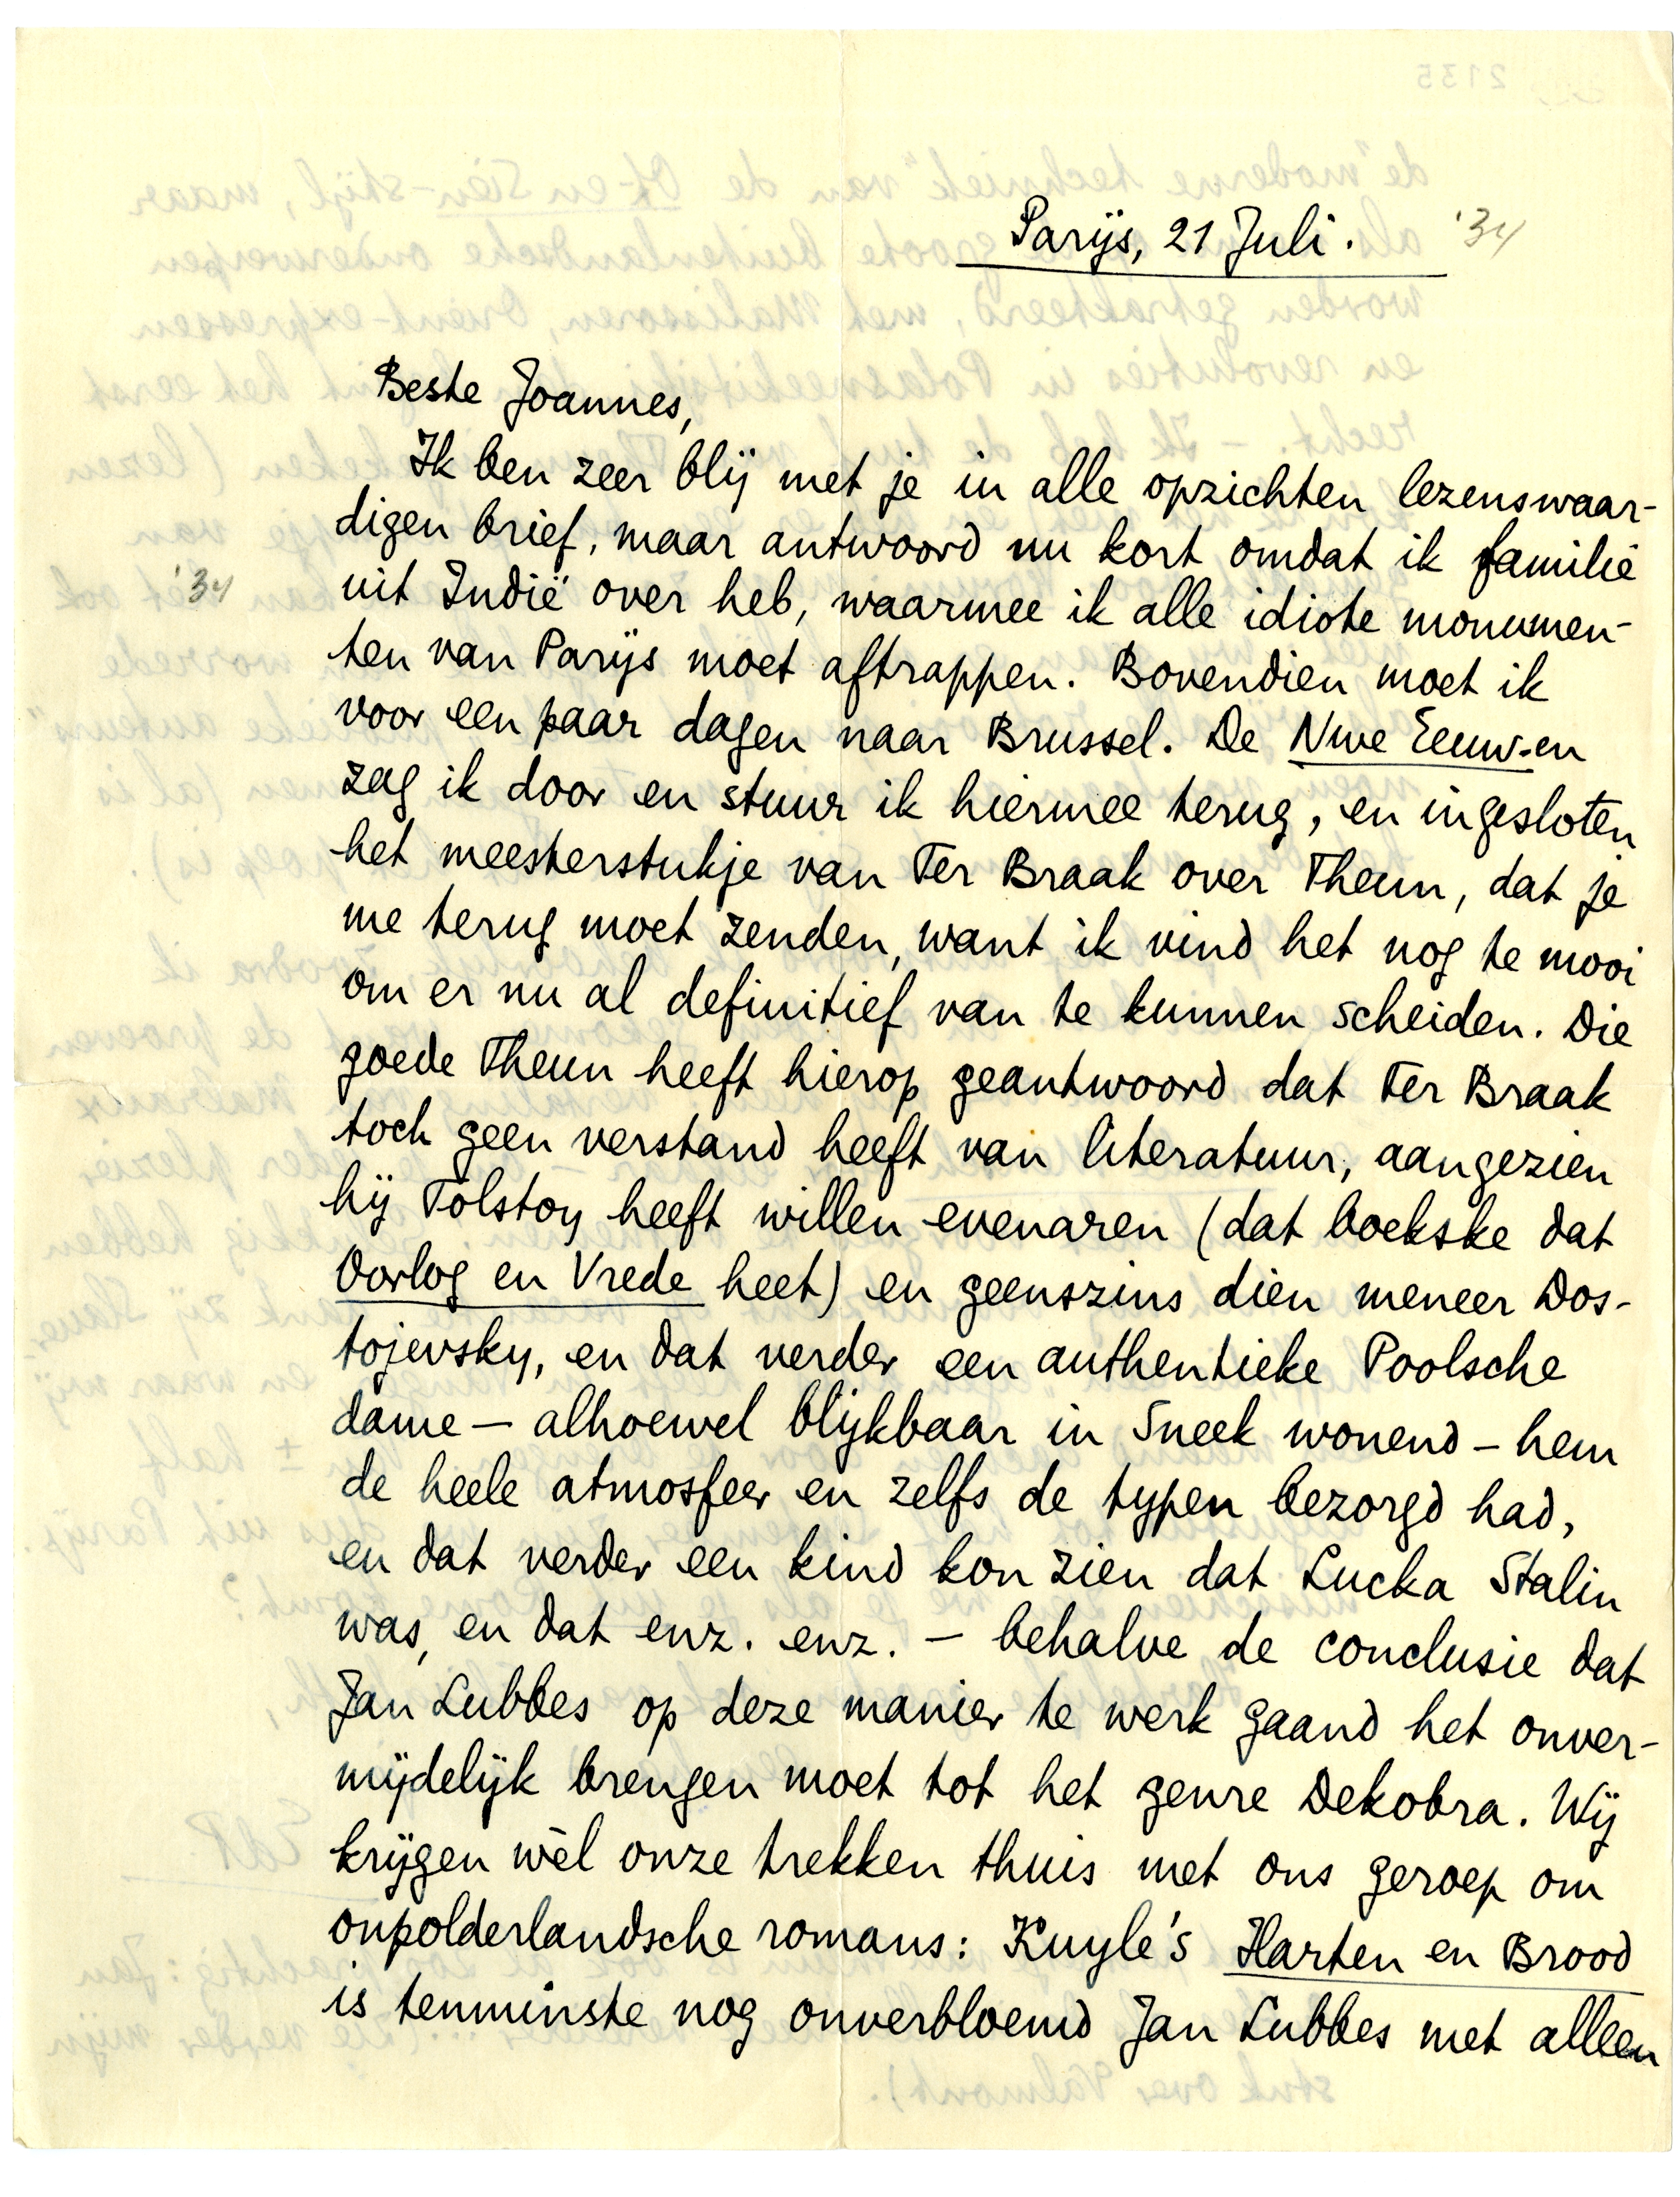 Parijs, 21 Juli. '34
Beste Joannes,
Ik ben zeer blij met je in alle opzichten lezenswaar-
digen brief, maar antwoord nu kort omdat ik familie
'34 uit Indië over heb, waarmee ik alle idiote monumen-
ten van Parijs moet aftrappen. Bovendien moet ik
voor een paar dagen naar Brussel. De Nwe Eeuw-en
zag ik door en stuur ik hiermee terug, en ingesloten
het meesterstukje van Ter Braak over Theun, dat je
me terug moet zenden, want ik vind het nog te mooi
om er nu al definitief van te kunnen scheiden. Die
goede Theun heeft hierop geantwoord dat Ter Braak
toch geen verstand heeft van literatuur, aangezien
hij Tolstoy heeft willen evenaren (dat boekske dat
Oorlog en Vrede heet) en geenszins dien meneer Dos-
tojevsky, en dat verder een authentieke Poolsche
dame – alhoewel blijkbaar in Sneek wonend – hem
de heele atmosfeer en zelfs de typen bezorgd had,
en dat verder een kind kon zien dat Lucka Stalin
was, en dat enz. enz. – behalve de conclusie dat
Jan Lubbes op deze manier te werk gaand het onver-
mijdelijk brengen moet tot het genre Dekobra. Wij
krijgen wèl onze trekken thuis met ons geroep om
onpolderlandsche romans: Kuyle's Harten en Brood
is tenminste nog onverbloemd Jan Lubbes met alleen